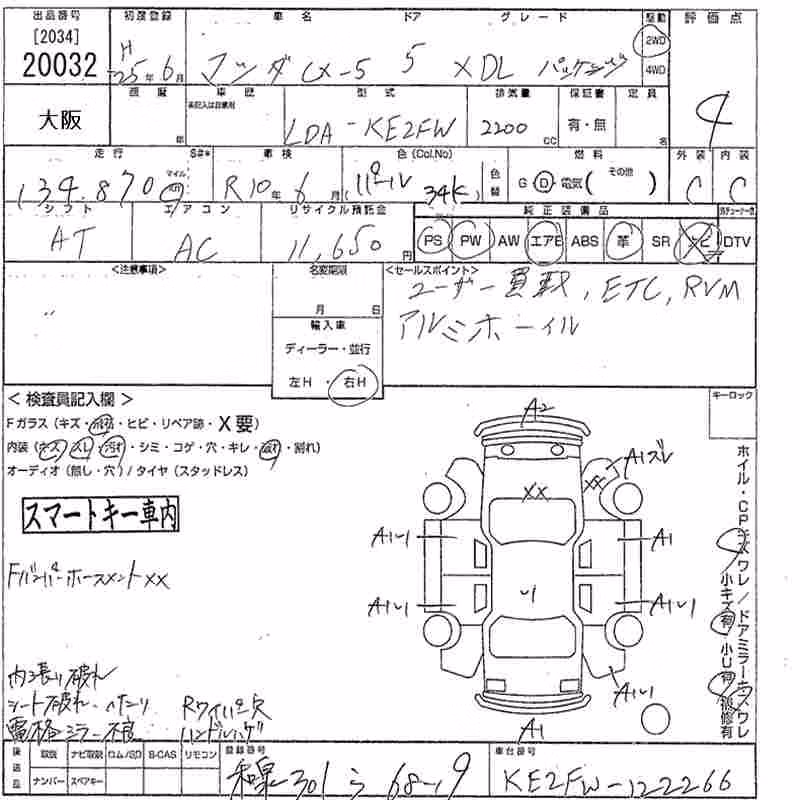 出品番号 [2034] 20032
初度登録 H 25年 6月
車名 ドア グレード
マツダ CX-5 5 XDL パッケージ
駆動 2WD 4WD
評価点 4
大阪
車歴 年
車歴 未記入は自家用
型式 LDA-KE2FW
排気量 2200 CC
保証書 有・無
定員 名
走行 134.870 マイル km
S#*
車検 R10年 6月
色(Col.No) パール 34K
色替
燃料 G・D・電気( その他 )
外装 C
内装 C
シフト AT
エアコン AC
リサイクル預託金 11,650円
純正装備品
PS PW AW エアB ABS 革 SR ナビ DTV
<注意事項>
名変期限 月 日
輸入車
ディーラー・並行
左H・右H
<セールスポイント>
ユーザー買取, ETC, RVM
アルミホイール
<検査員記入欄>
Fガラス(キズ・飛石・ヒビ・リペア跡・X要)
内装(キズ・スレ・汚れ・シミ・コゲ・穴・キレ・破れ・割れ)
オーディオ(無し・穴)/タイヤ(スタッドレス)
スマートキー車内
Fバンパーホースメントxx
内張り破れ
シート破れ・ヘタリ
Rワイパー穴
電格ミラー不良
ハンドルハゲ
キーロック
ホイル・CPキズワレ/ドアミラーキズワレ
小キズ有 小U有 補修有
A2
A1ズレ
XX
A1U1
A1
U1
A1U1
A1U1
A1U1
A1
後送品
取説 ナビ取説 ロム/SD B-CAS リモコン
ナンバー スペアキー
登録番号 和泉 301 ら 68-19
車台番号 KE2FW-122266